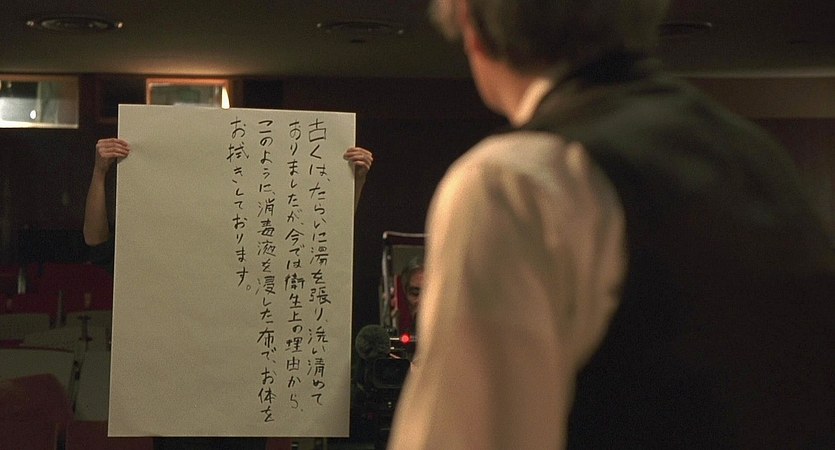 古くは、たらいに湯を張り、洗い清めて
ありましたが、今では衛生上の理由から、
このように、消毒液を浸した布で、お体を
お拭きしております。